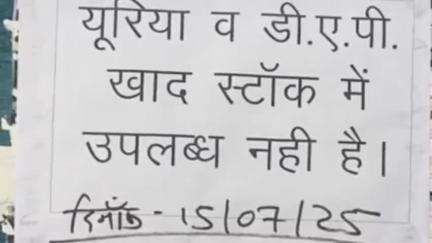 यूरिया व डी.ए.पी.
खाद स्टॉक में
उपलब्ध नही है।
दिनाँक - 15/07/25